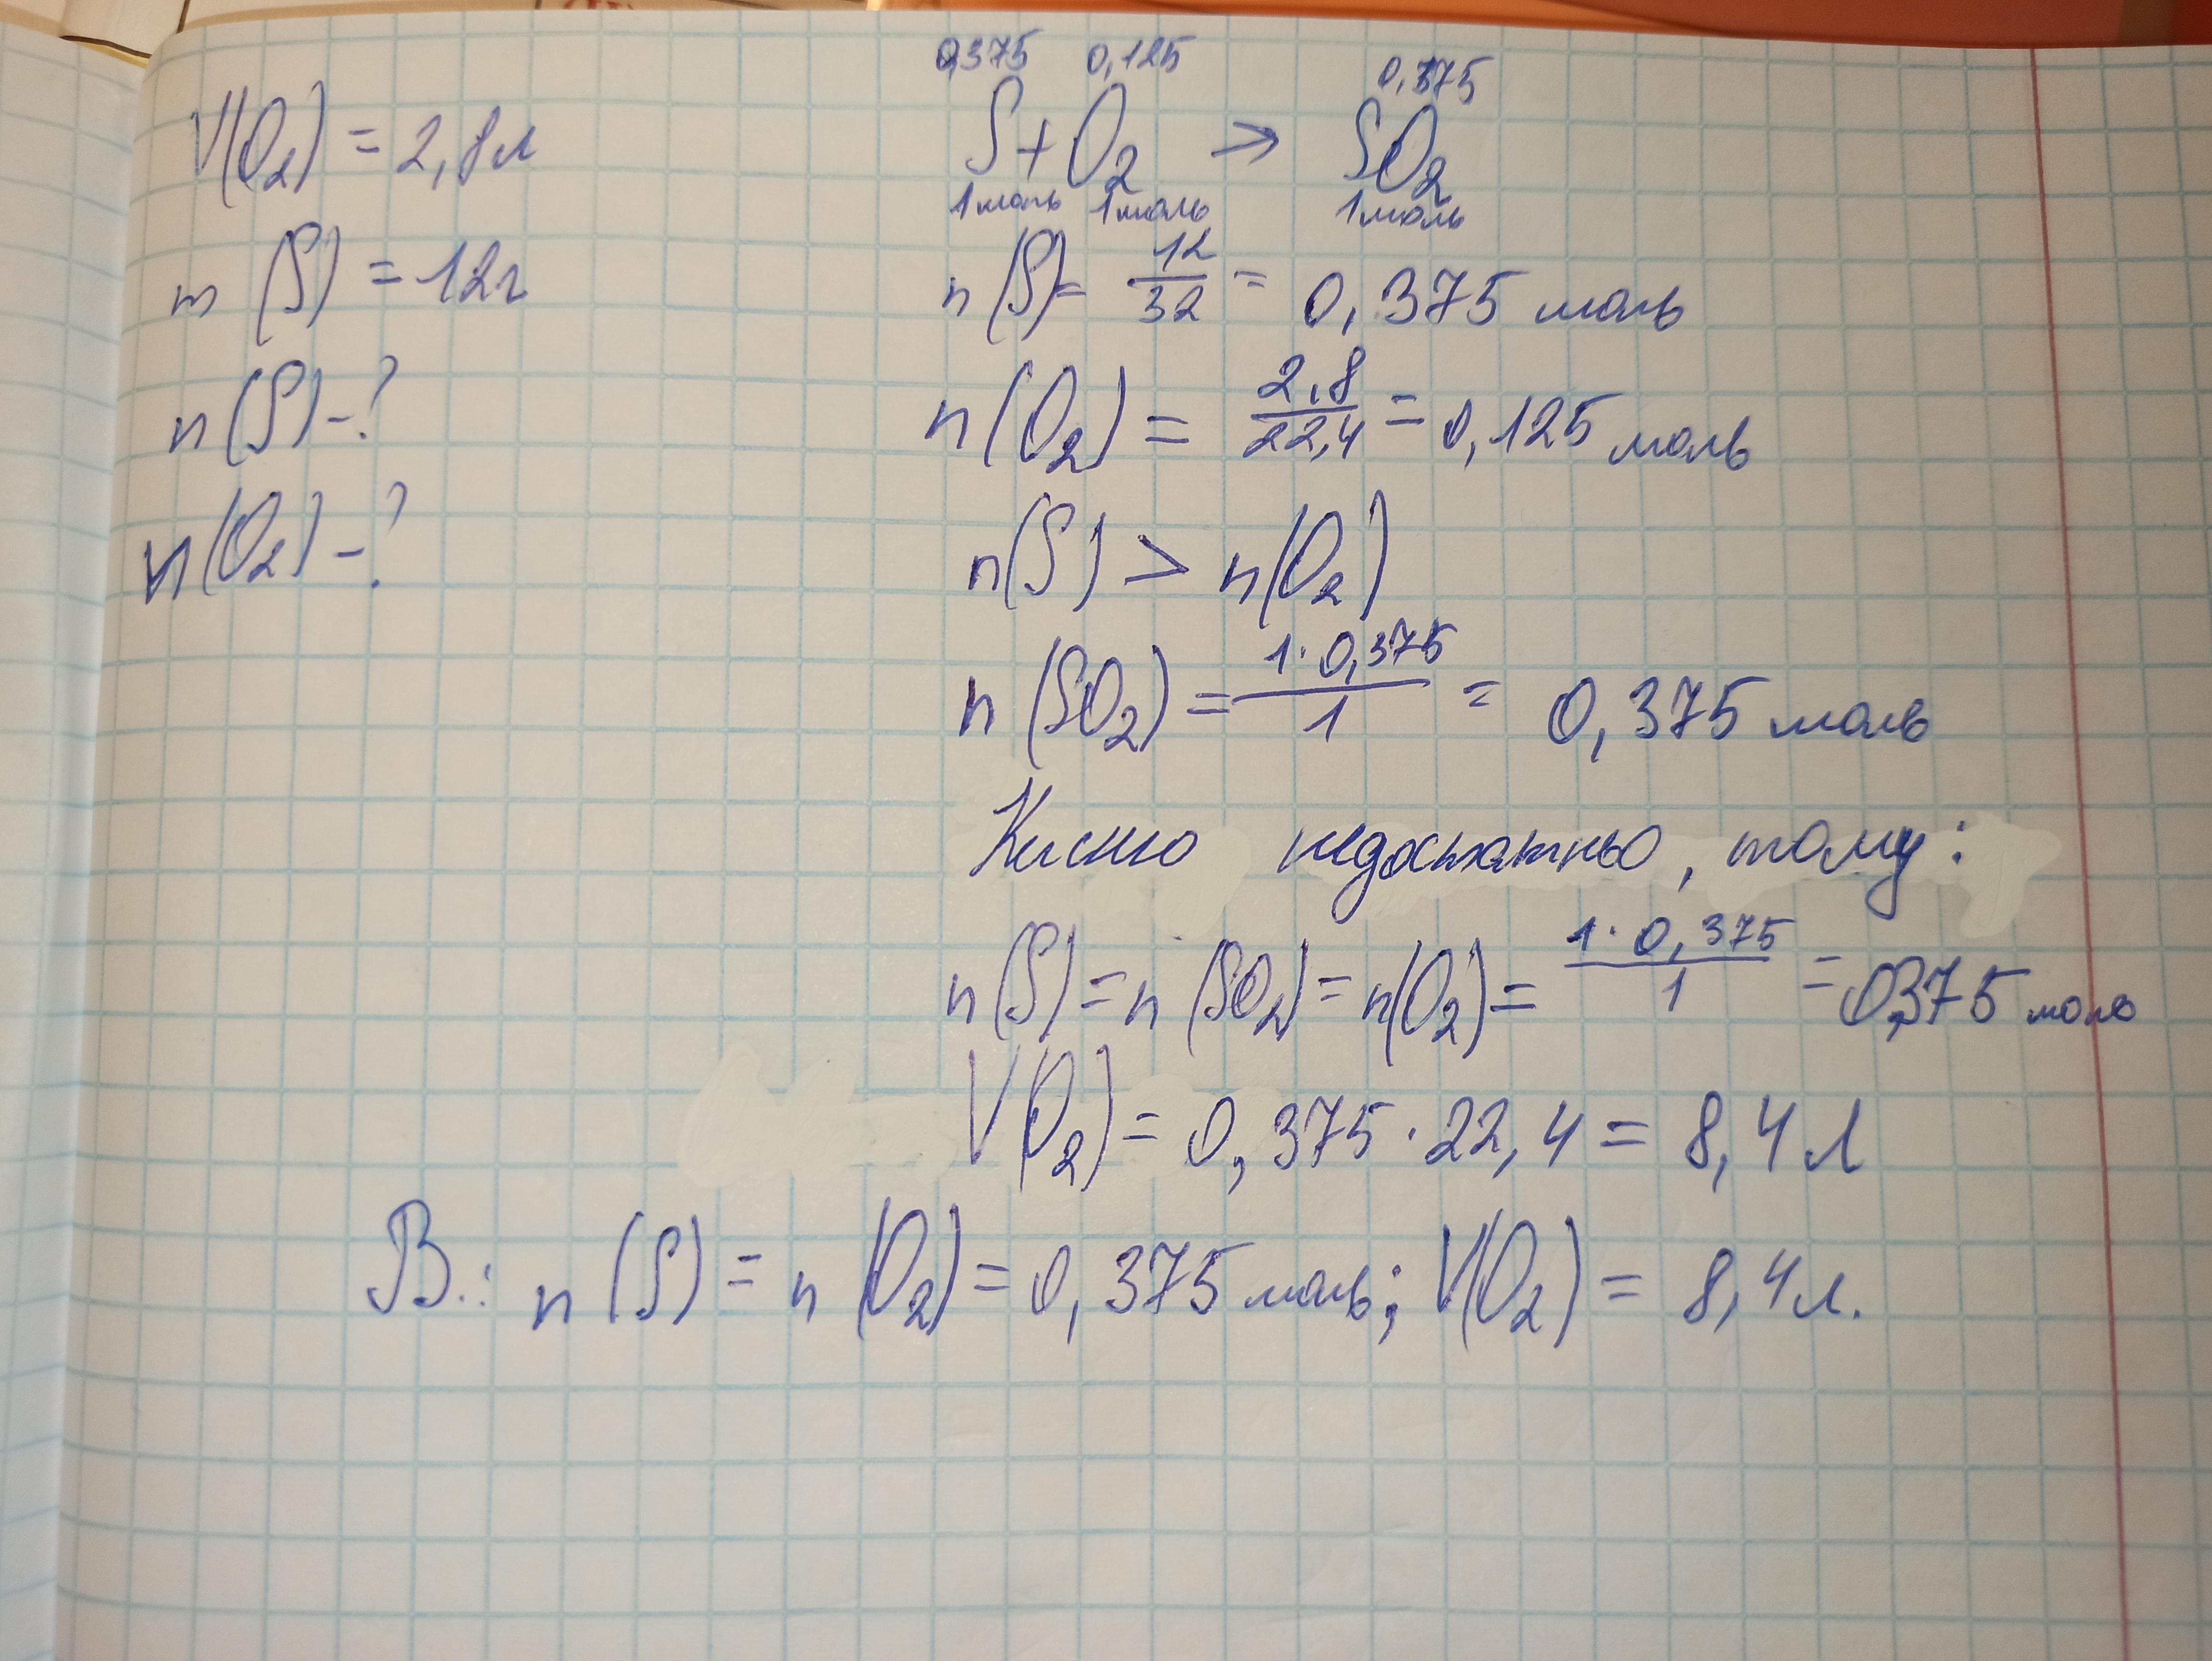 V(O₂) = 2,8л
m (S) = 12г
n(S) - ?
n(O₂) - ?
0,375 0,125 0,375
S + O₂ → SO₂
1моль 1моль 1моль
n(S) = 12/32 = 0,375 моль
n(O₂) = 2,8/22,4 = 0,125 моль
n(S) > n(O₂)
n(SO₂) = 1·0,375/1 = 0,375 моль
Кисню недостатньо, тому:
n(S) = n(SO₂) = n(O₂) = 1·0,375/1 = 0,375 моль
V(O₂) = 0,375·22,4 = 8,4 л
В.: n(S) = n(O₂) = 0,375 моль; V(O₂) = 8,4л.